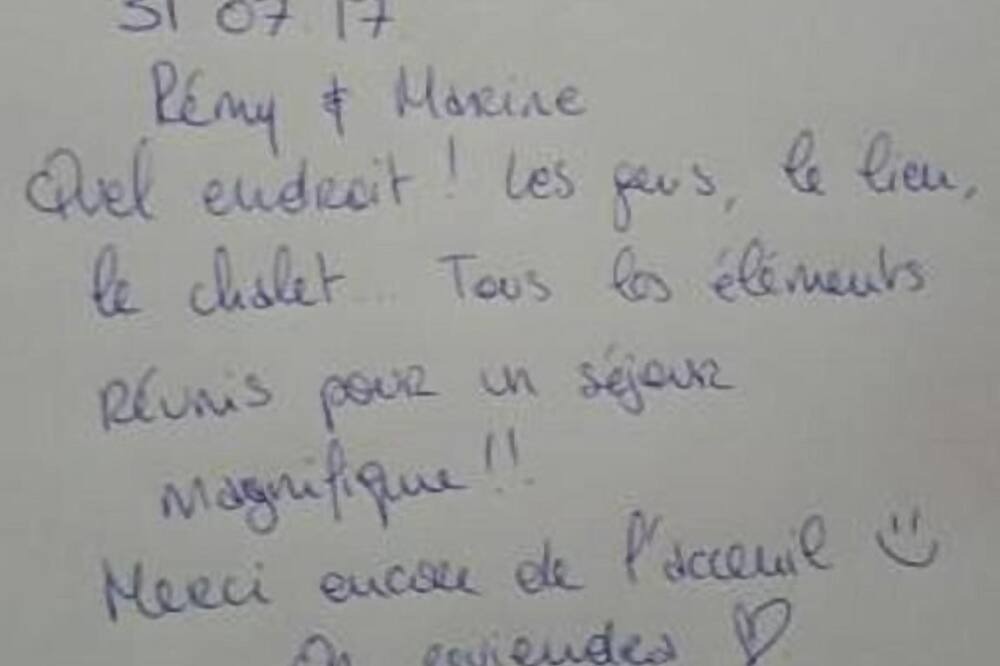 31 07 17
Rémy & Maxine
Quel endroit ! Les gens, le lieu,
le chalet... Tous les éléments
réunis pour un séjour
magnifique !!
Merci encore de l'acceuil
On reviendra